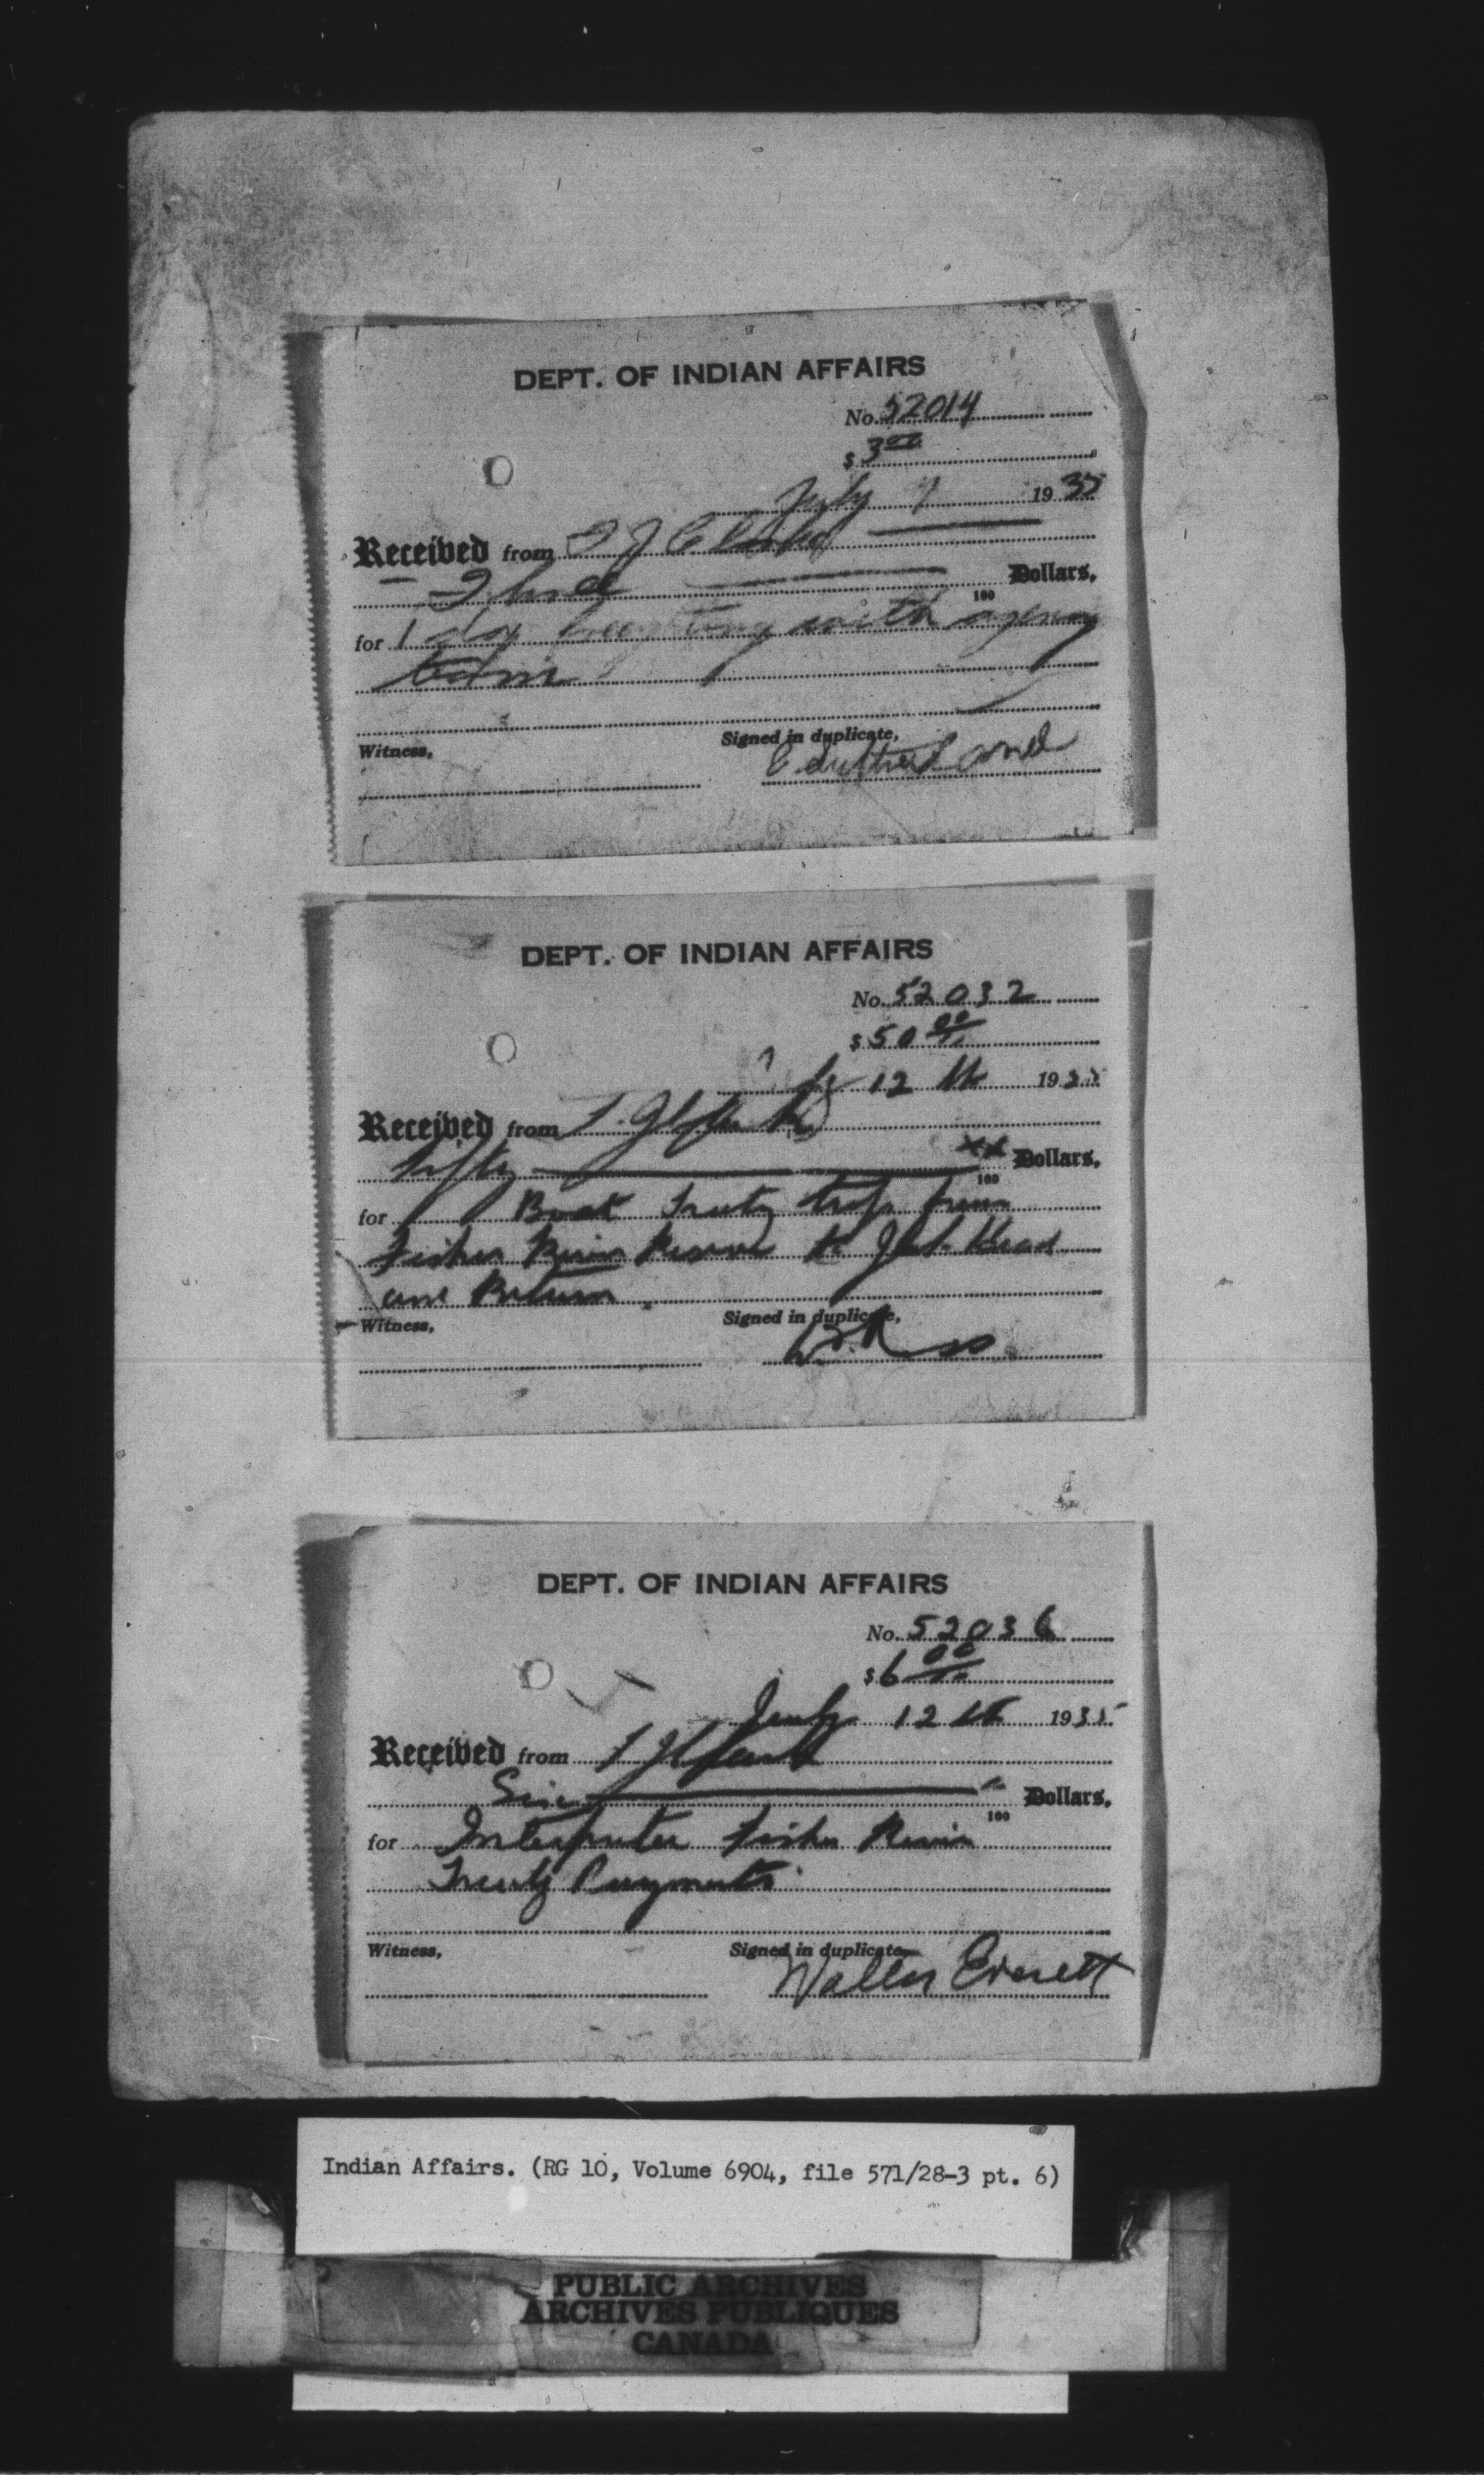 DEPT. OF INDIAN AFFAIRS
No. 52014
$ 3 00
July 1935
Received from T J
Three Dollars,
100
for 1 day with agency
team
Witness, Signed in duplicate,
C Sutherland
DEPT. OF INDIAN AFFAIRS
No. 52032
$ 50 00
12 th 1935
Received from T.
Fifty xx Dollars,
100
for Boat Treaty trip from
Fisher River Reserve to Jack Head
and Return
Witness, Signed in duplicate,
DEPT. OF INDIAN AFFAIRS
No. 52036
$ 6 00
July 12 th 1935
Received from T
Six Dollars,
100
for Interpreter Fisher River
Treaty Payments
Witness, Signed in duplicate
Walter Everett
Indian Affairs. (RG 10, Volume 6904, file 571/28-3 pt. 6)
PUBLIC ARCHIVES
ARCHIVES PUBLIQUES
CANADA